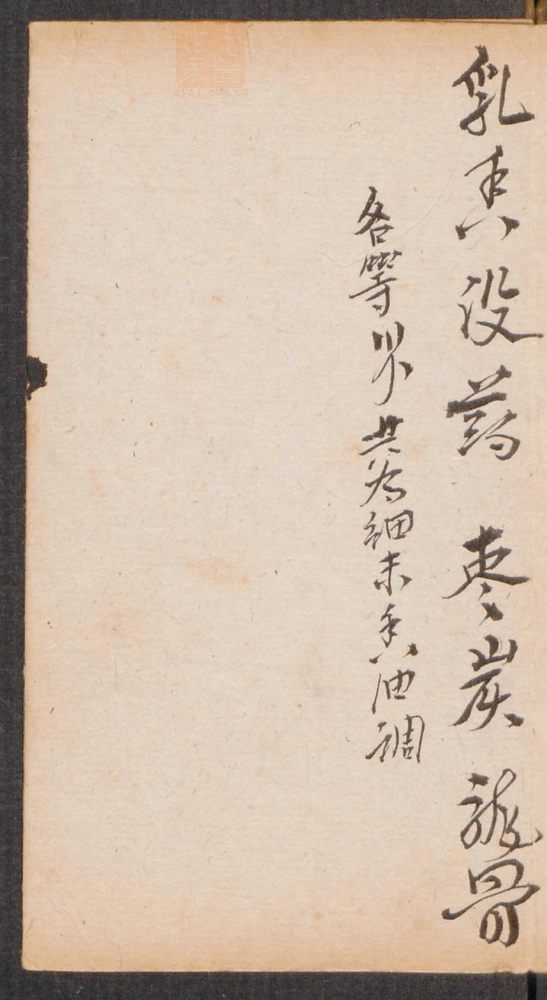 乳香没药 枣炭龍骨
各等分共为細末香油調